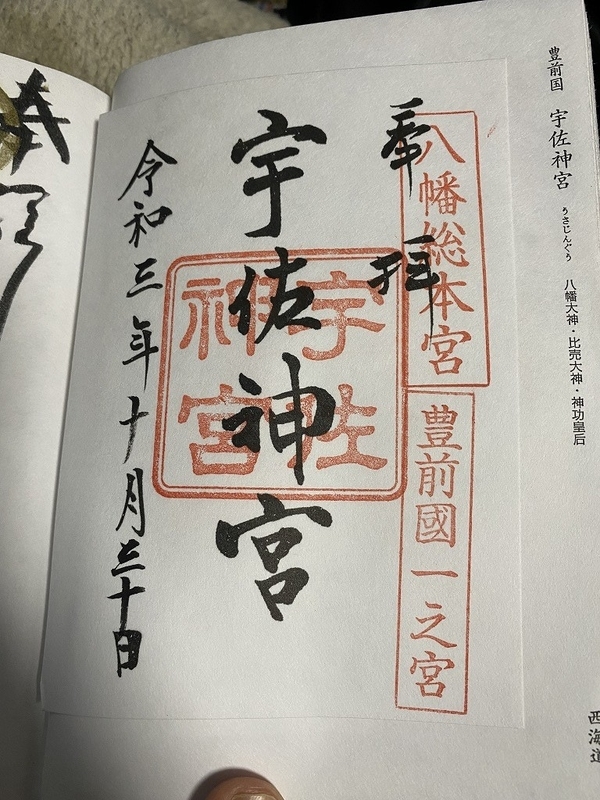 豊前国 宇佐神宮 うさじんぐう 八幡大神・比売大神・神功皇后
西海道
八幡総本宮
豊前國一之宮
奉拝
宇佐神宮
宇佐神宮
令和三年十月三十日
奉